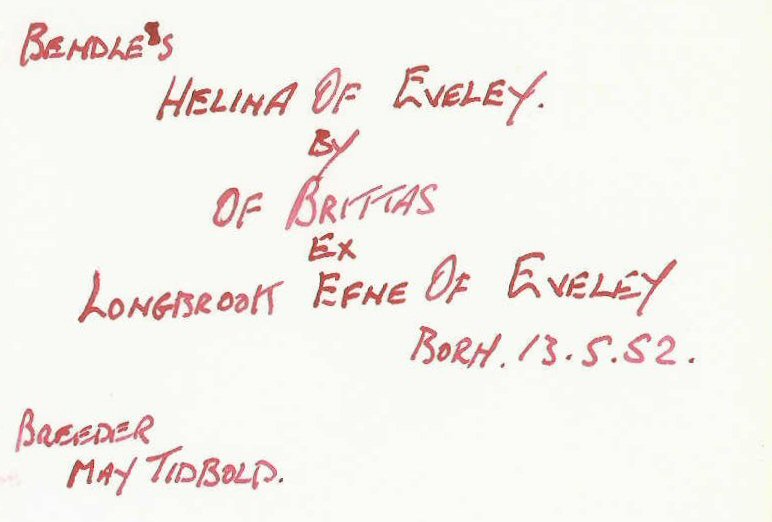 BENDLE'S
HELINA OF EVELEY.
BY
OF BRITTAS
EX
LONGBROOK EFNE OF EVELEY
BORN. 13.5.52.
BREEDER
MAY TIDBOLD.